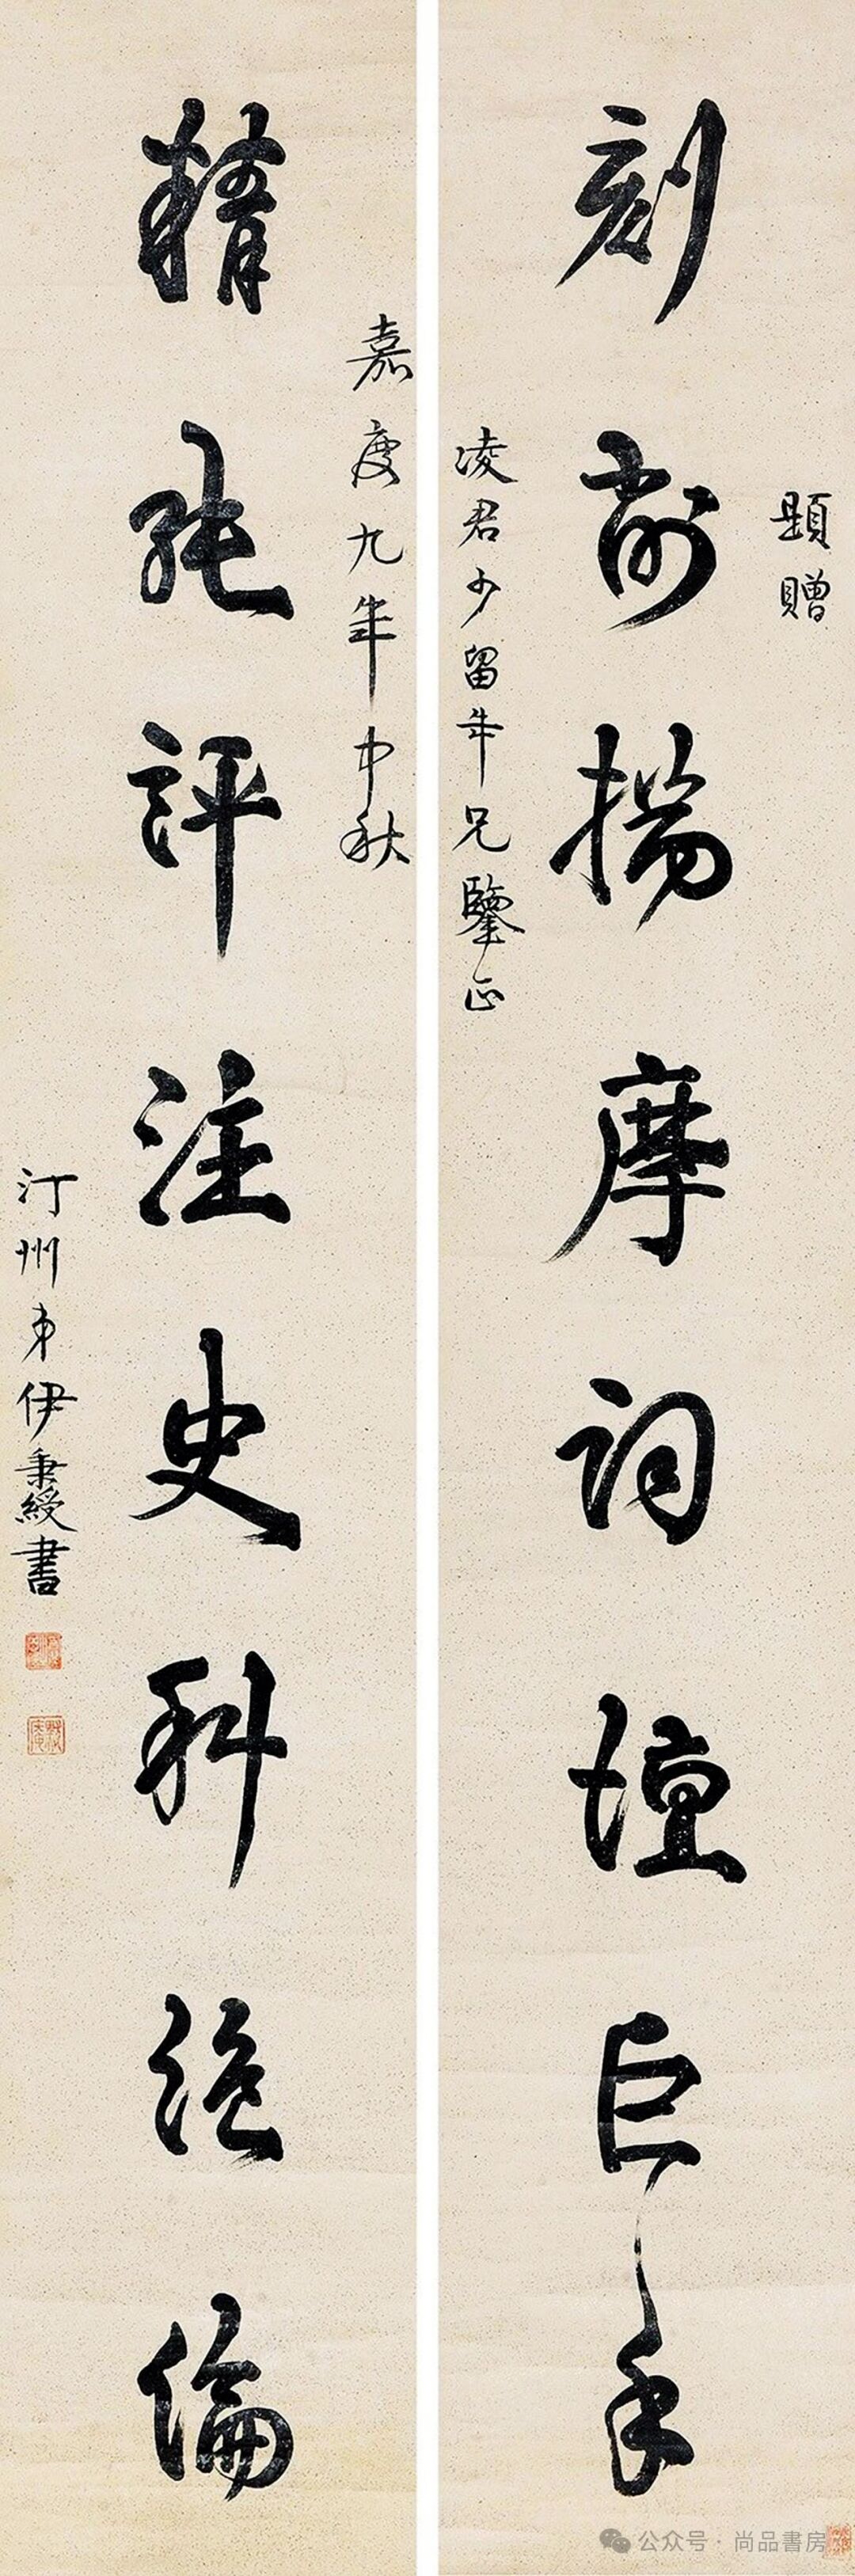 題贈
刻揚摩詞壇巨手
凌君少留年兄鑒正
嘉慶九年中秋
精純評注史科絕倫
汀州弟伊秉綬書
公众号 · 尚品書房